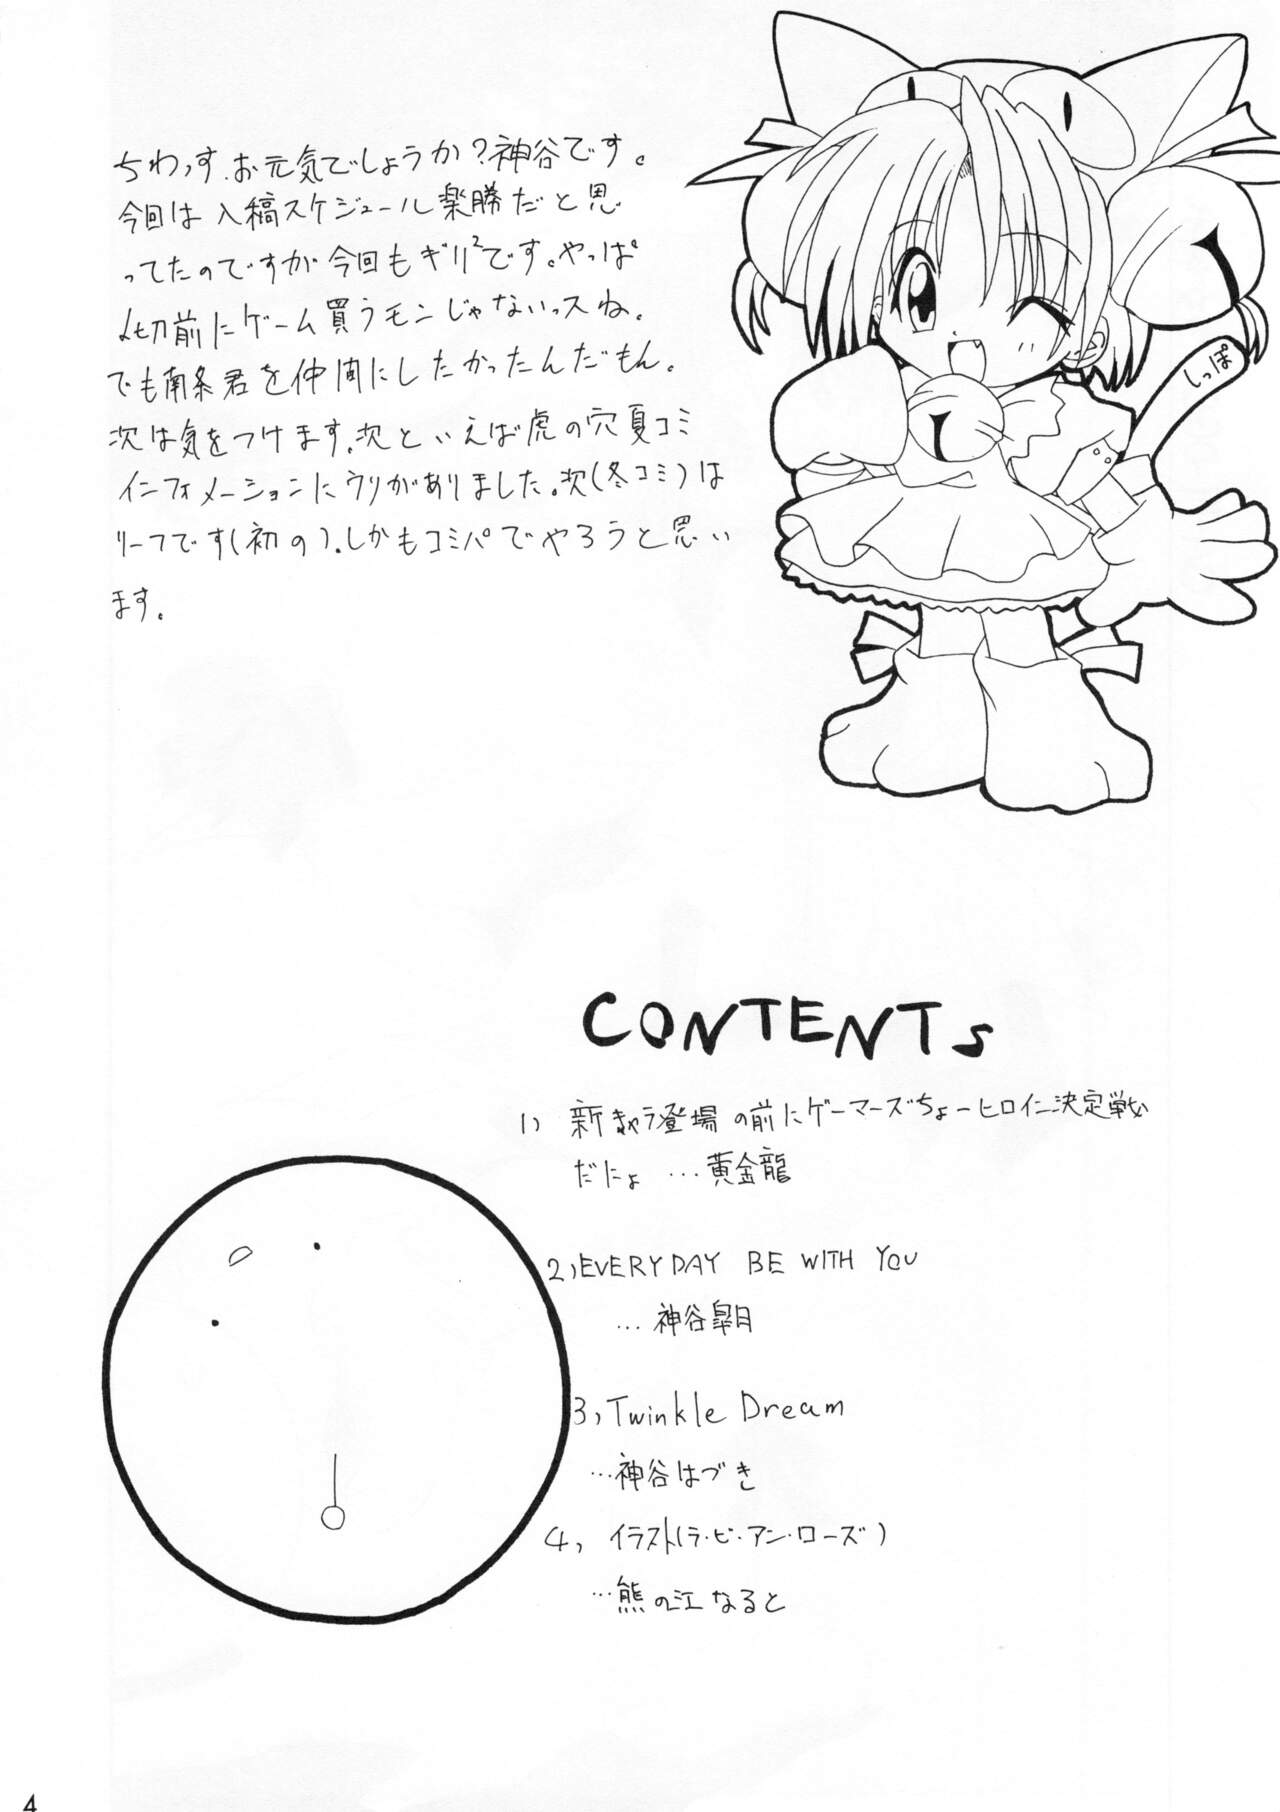 ちわっす、お元気でしょうか?神谷です。
今回は入稿スケジュール楽勝だと思
ってたのですが今回もギリ²です。やっぱ
〆切前にゲーム買うモンじゃないっスね。
でも南条君を仲間にしたかったんだもん。
次は気をつけます。次といえば虎の穴夏コミ
インフォメーションにウリがありました。次(冬コミ)は
リーフです(初の)。しかもコミパでやろうと思い
ます。
しっぽ
CONTENTs
1) 新キャラ登場の前にゲーマーズちょーヒロイン決定戦
だにょ …黄金龍
2) EVERYDAY BE WITH YOU
… 神谷皐月
3, Twinkle Dream
…神谷はづき
4, イラスト(ラ・ビ・アン・ローズ)
…熊の江なると
4